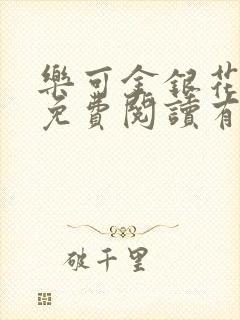 樂可金銀花
免費閱讀有
破千里